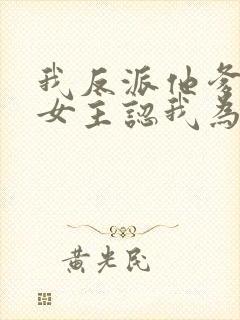 我反派他爹
女主認我為
黃光民